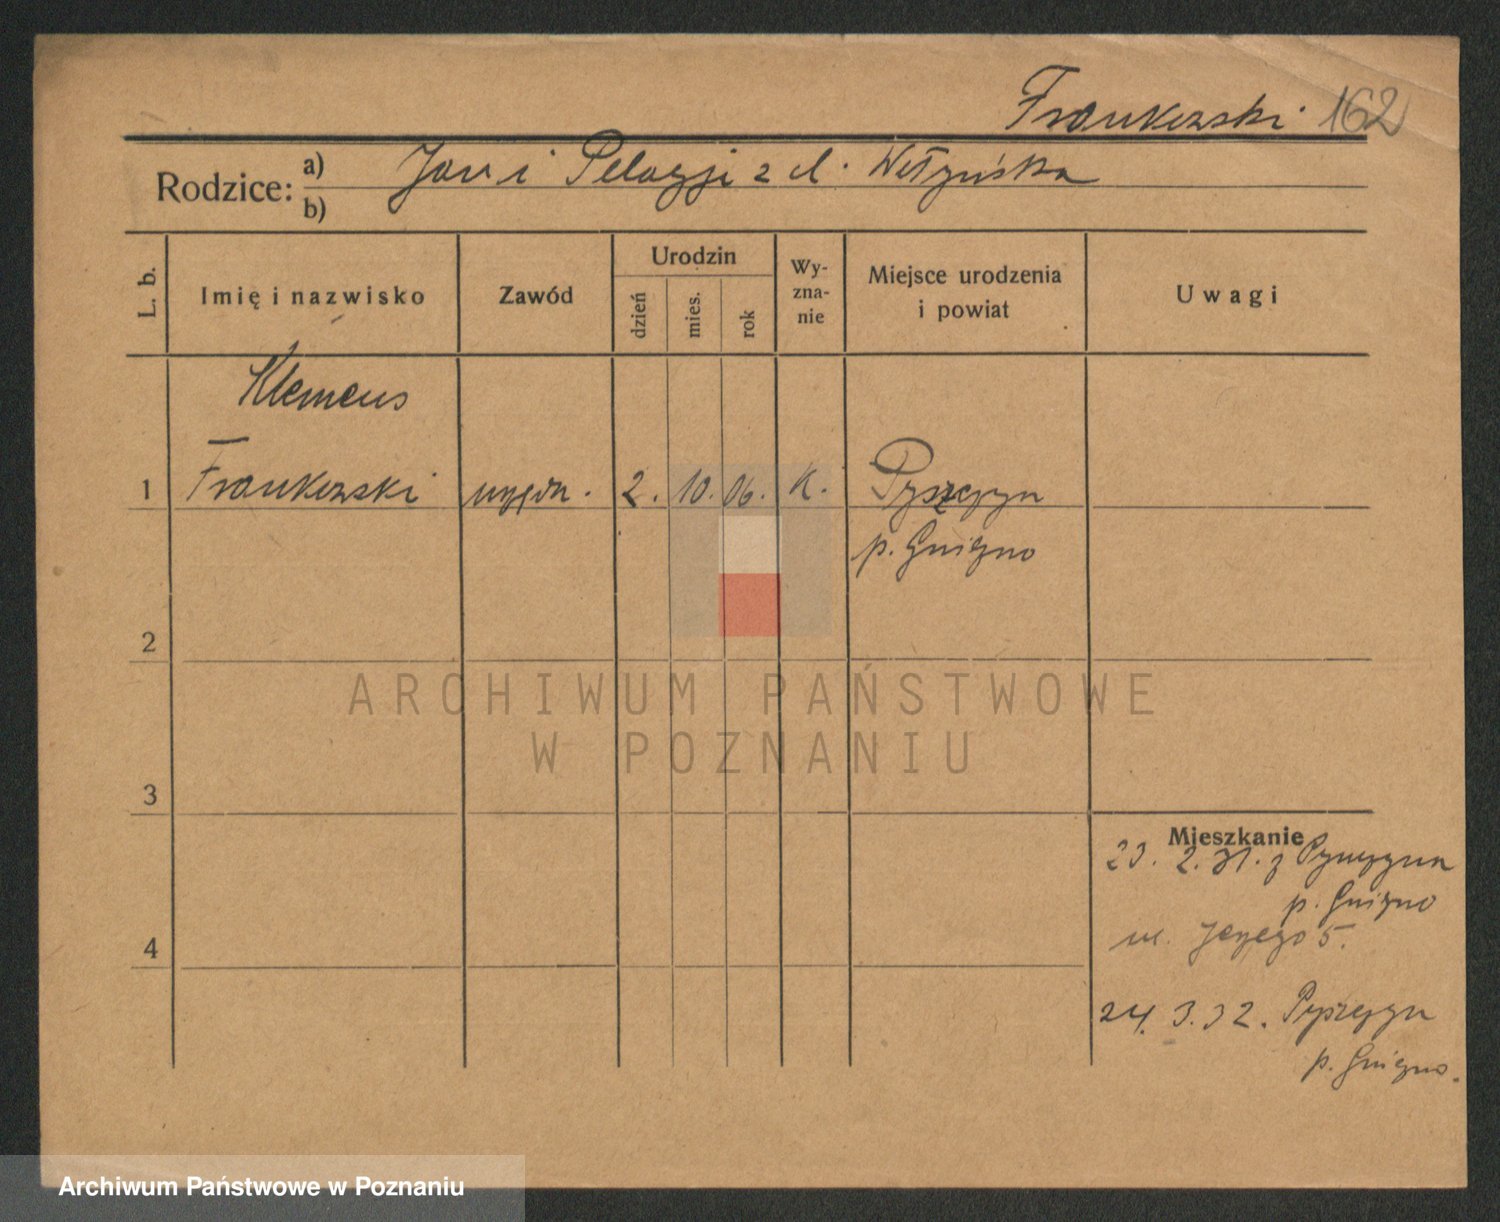 Frankowski 162
Rodzice: a) Jan i Pelagji z d. Wełzyńska
b)
L. b.
Imię i nazwisko
Zawód
Urodzin
dzień
mies.
rok
Wy-
zna-
nie
Miejsce urodzenia
i powiat
Uwagi
Klemens
1 Frankowski 2. 10. 06. k. Pyszczyn
p. Gniezno
2
ARCHIWUM PAŃSTWOWE
W POZNANIU
3
Mieszkanie
23. 2. 31. z Pyszczyna
p. Gniezno
ul. 5.
4
24. 3. 32. Pyszczyn
p. Gniezno.
Archiwum Państwowe w Poznaniu